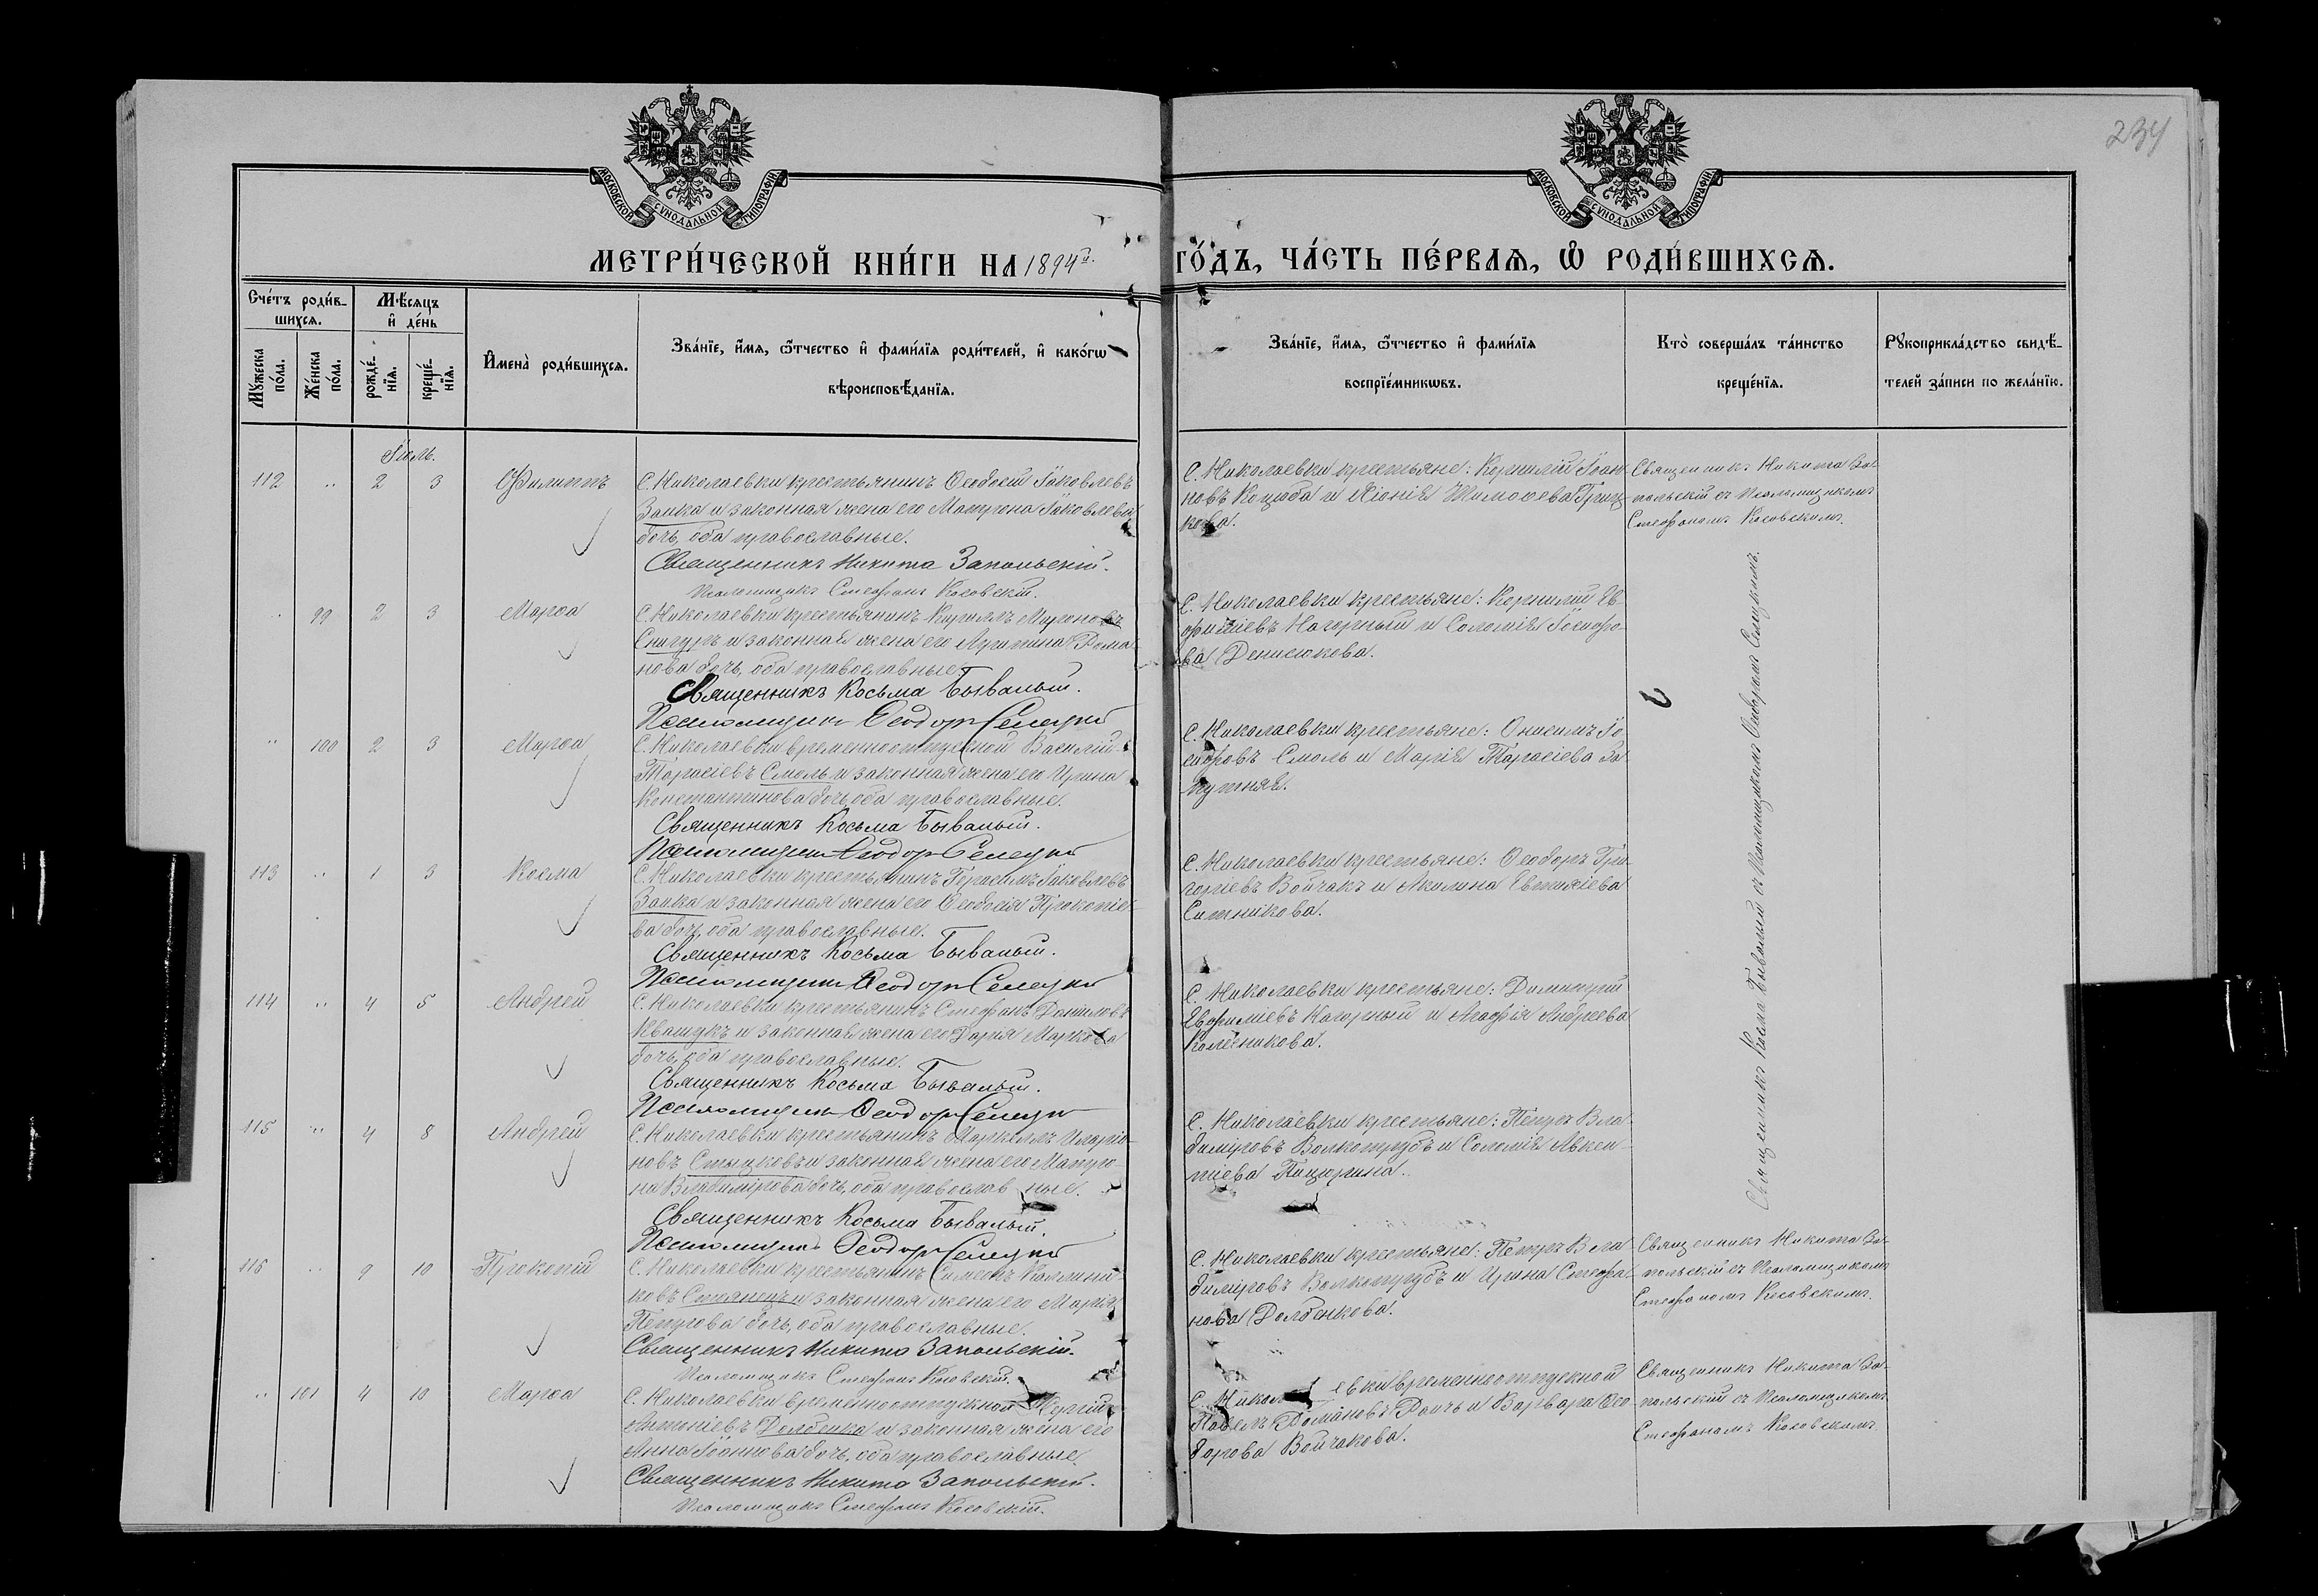 234
МОСКОВСКОЙ СѴНОДАЛЬНОЙ ТИПОГРАФІИ
МОСКОВСКОЙ СѴНОДАЛЬНОЙ ТИПОГРАФІИ
МЕТРИ́ЧЕСКОЙ КНИ́ГИ НА 1894й. ГО́ДЪ, ЧА́СТЬ ПЕ́РВАѦ, Ѽ РОДИ́ВШИХСѦ.
Сче́тъ роди́в-
шихсѧ.
Мꙋ́жеска
по́ла.
Же́нска
по́ла.
Мѣ́сѧцъ
и҆ де́нь
рожде́-
нїѧ.
креще́-
нїѧ.
И҆мена̀ роди́вшихсѧ.
Зва́нїе, и҆́мѧ, ѻ҆́тчество и҆ фами́лїѧ роди́телей, и҆ како́гѡ
вѣроисповѣ́данїѧ.
Зва́нїе, и҆́мѧ, ѻ҆́тчество и҆ фами́лїѧ
воспрїе́мникѡвъ.
Кто̀ соверша́лъ та́инство
креще́нїѧ.
Рꙋкоприкла́дство свидѣ́-
телей за́писи по жела́нїю.
Іюль.
112 " 2 3 Филиппъ
С. Николаевки крестьянинъ Ѳеодосій Іаковлевъ
Заика и законная жена его Матрона Іаковлева
дочь, оба православные.
Священникъ Никита Запольскій.
Псаломщикъ Стефанъ Косовскій.
С. Николаевки крестьяне: Корнилій Іоан-
новъ Коцюба и Хіонія Тимоѳеева Гриц-
кова.
Священникъ Никита За-
польскій съ Псаломщикомъ
Стефаномъ Косовскимъ.
" 99 2 3 Марѳа
С. Николаевки крестьянинъ Кириллъ Мироновъ
Снигуръ и законная жена его Агрипина Рома-
нова дочь, оба православные.
Священникъ Косьма Бывалый.
Псаломщикъ Ѳеодоръ Селецкій
С. Николаевки крестьяне: Корнилій Ев-
фиміевъ Нагорный и Соломія Іосифо-
ва Денисюкова.
" 100 2 3 Марѳа
С. Николаевки временноотпускной Василій
Тарасіевъ Смоль и законная жена его Ирина
Константинова дочь, оба православные.
Священникъ Косьма Бывалый.
Псаломщикъ Ѳеодоръ Селецкій
С. Николаевки крестьяне: Онисимъ Іо-
сифовъ Смоль и Марія Тарасіева За-
путняя.
113 " 1 3 Косма
С. Николаевки крестьянинъ Герасимъ Іаковлевъ
Заика и законная жена его Ѳеодосія Прокопіе-
ва дочь, оба православные.
Священникъ Косьма Бывалый.
Псаломщикъ Ѳеодоръ Селецкій
С. Николаевки крестьяне: Ѳеодоръ Гри-
горіевъ Войчакъ и Акилина Евтихіева
Ситникова.
114 " 4 5 Андрей
С. Николаевки крестьянинъ Стефанъ Даніиловъ
Ивашукъ и законная жена его Дарія Маркова
дочь, оба православные.
Священникъ Косьма Бывалый.
Псаломщикъ Ѳеодоръ Селецкій
С. Николаевки крестьяне: Димитрій
Евфиміевъ Нагорный и Агафія Андреева
Колесникова.
115 " 4 8 Андрей
С. Николаевки крестьянинъ Маркеллъ Иларіо-
новъ Стыцковъ и законная жена его Матро-
на Владимірова дочь, оба православные.
Священникъ Косьма Бывалый.
Псаломщикъ Ѳеодоръ Селецкій
С. Николаевки крестьяне: Петръ Вла-
диміровъ Волкотрубъ и Соломія Авксен-
тіева Пацюрина.
Священникъ Косма Бывалый съ Псаломщикомъ Ѳеодоромъ Селецкимъ.
116 " 9 10 Прокопій
С. Николаевки крестьянинъ Симеонъ Каллини-
ковъ Стоянецъ и законная жена его Марія
Петрова дочь, оба православные.
Священникъ Никита Запольскій.
Псаломщикъ Стефанъ Косовскій.
С. Николаевки крестьяне: Петръ Вла-
диміровъ Волкотрубъ и Ирина Стефа-
нова Долбенкова.
Священникъ Никита За-
польскій съ Псаломщикомъ
Стефаномъ Косовскимъ.
" 101 4 10 Марѳа
С. Николаевки временноотпускной Сергій
Антоніевъ Долбенко и законная жена его
Анна Іоаннова дочь, оба православные.
Священникъ Никита Запольскій.
Псаломщикъ Стефанъ Косовскій.
С. Николаевки временноотпускной
Павелъ Романовъ Раичъ и Варвара Ѳео-
дорова Войчакова.
Священникъ Никита За-
польскій съ Псаломщикомъ
Стефаномъ Косовскимъ.